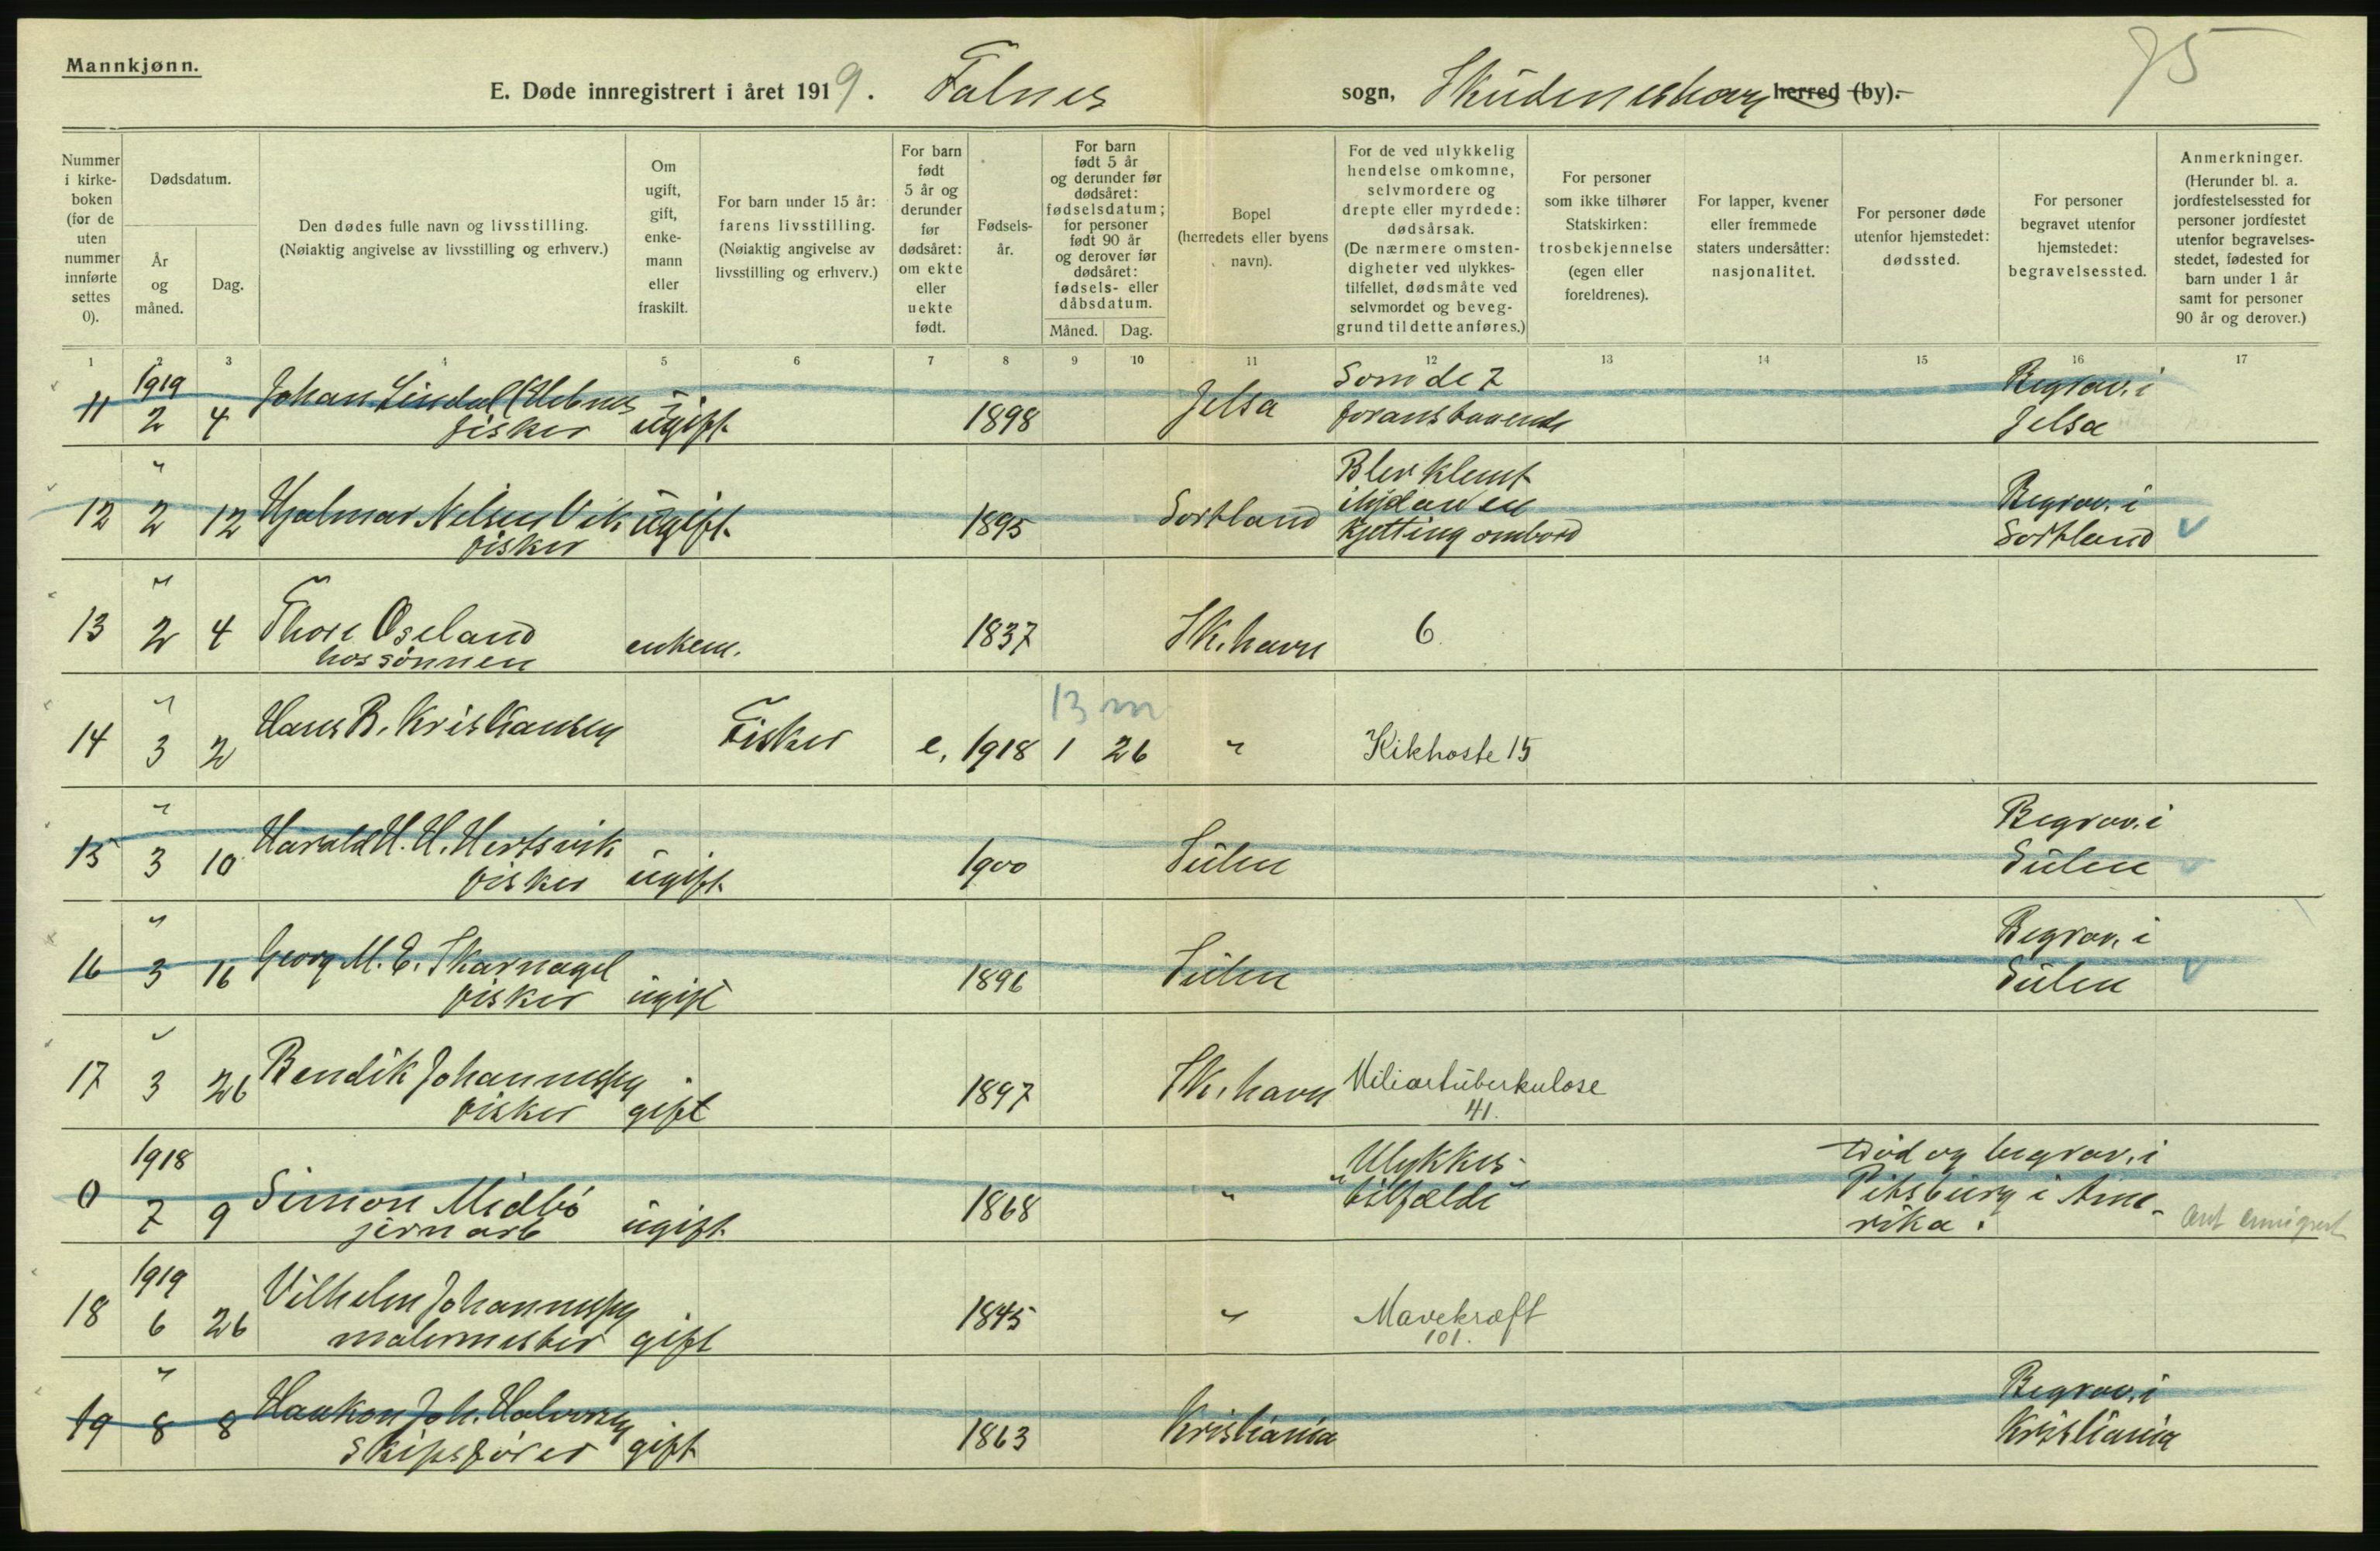 Mannkjønn.
75
E. Døde innregistrert i året 1919. Falnes sogn, Skudeneshavn herred (by).
Nummer i kirke- boken (for de uten nummer innførte settes 0).
Dødsdatum.
År og måned.
Dag.
Den dødes fulle navn og livsstilling. (Nøiaktig angivelse av livsstilling og erhverv.)
Om ugift, gift, enke- mann eller fraskilt.
For barn under 15 år: farens livsstilling. (Nøiaktig angivelse av livsstilling og erhverv.)
For barn født 5 år og derunder før dødsåret: om ekte eller uekte født.
Fødsels- år.
For barn født 5 år og derunder før dødsåret: fødselsdatum; for personer født 90 år og derover før dødsåret: fødsels- eller dåbsdatum.
Måned. Dag.
Bopel (herredets eller byens navn).
For de ved ulykkelig hendelse omkomne, selvmordere og drepte eller myrdede: dødsårsak. (De nærmere omsten- digheter ved ulykkes- tilfellet, dødsmåte ved selvmordet og beveg- grund til dette anføres.)
For personer som ikke tilhører Statskirken: trosbekjennelse (egen eller foreldrenes).
For lapper, kvener eller fremmede staters undersåtter: nasjonalitet.
For personer døde utenfor hjemstedet: dødssted.
For personer begravet utenfor hjemstedet: begravelsessted.
Anmerkninger. (Herunder bl. a. jordfestelsessted for personer jordfestet utenfor begravelses- stedet, fødested for barn under 1 år samt for personer 90 år og derover.)
1 2 3 4 5 6 7 8 9 10 11 12 13 14 15 16 17
1919 Som de 7 Begrav. i
11 2 4 Johan Lindal
fisker ugift 1898 Jelsa foranstaaende Jelsa
" Blev klemt
12 2 12 Hjalmar Nilsen Vik ugift 1895 Sortland ihjel av en Begrav. i
fisker kjetting ombord Sortland
"
13 2 4 Thore Oseland enkem. 1837 Sk. havn 6
hos sønnen
" 13 m
14 3 2 Hans B. Kristiansen Fisker e. 1918 1 26 " Kikhoste 15
" Begrav. i
15 3 10 Harald H. H. Hertsvik
fisker ugift 1900 Sulen Sulen
" Begrav. i
16 3 16 Georg M. E. Skarnagel
fisker ugift 1896 Sulen Sulen
"
17 3 26 Bendik Johannessen 1897 Sk. havn Miliærtuberkulose
fisker gift 41.
1918 Ulykkes- Død og begrav. i
0 7 9 Simon Midbø 1868 " "tilfælde" Pitsburg i Ame-
jernarb ugift rika.
1919
18 6 26 Vilhelm Johannessen 1845 " Mavekræft
malermester gift 101.
" Begrav. i
19 8 8 Haakon Joh. Halvorsen
skipsfører gift 1863 Kristiania Kristiania